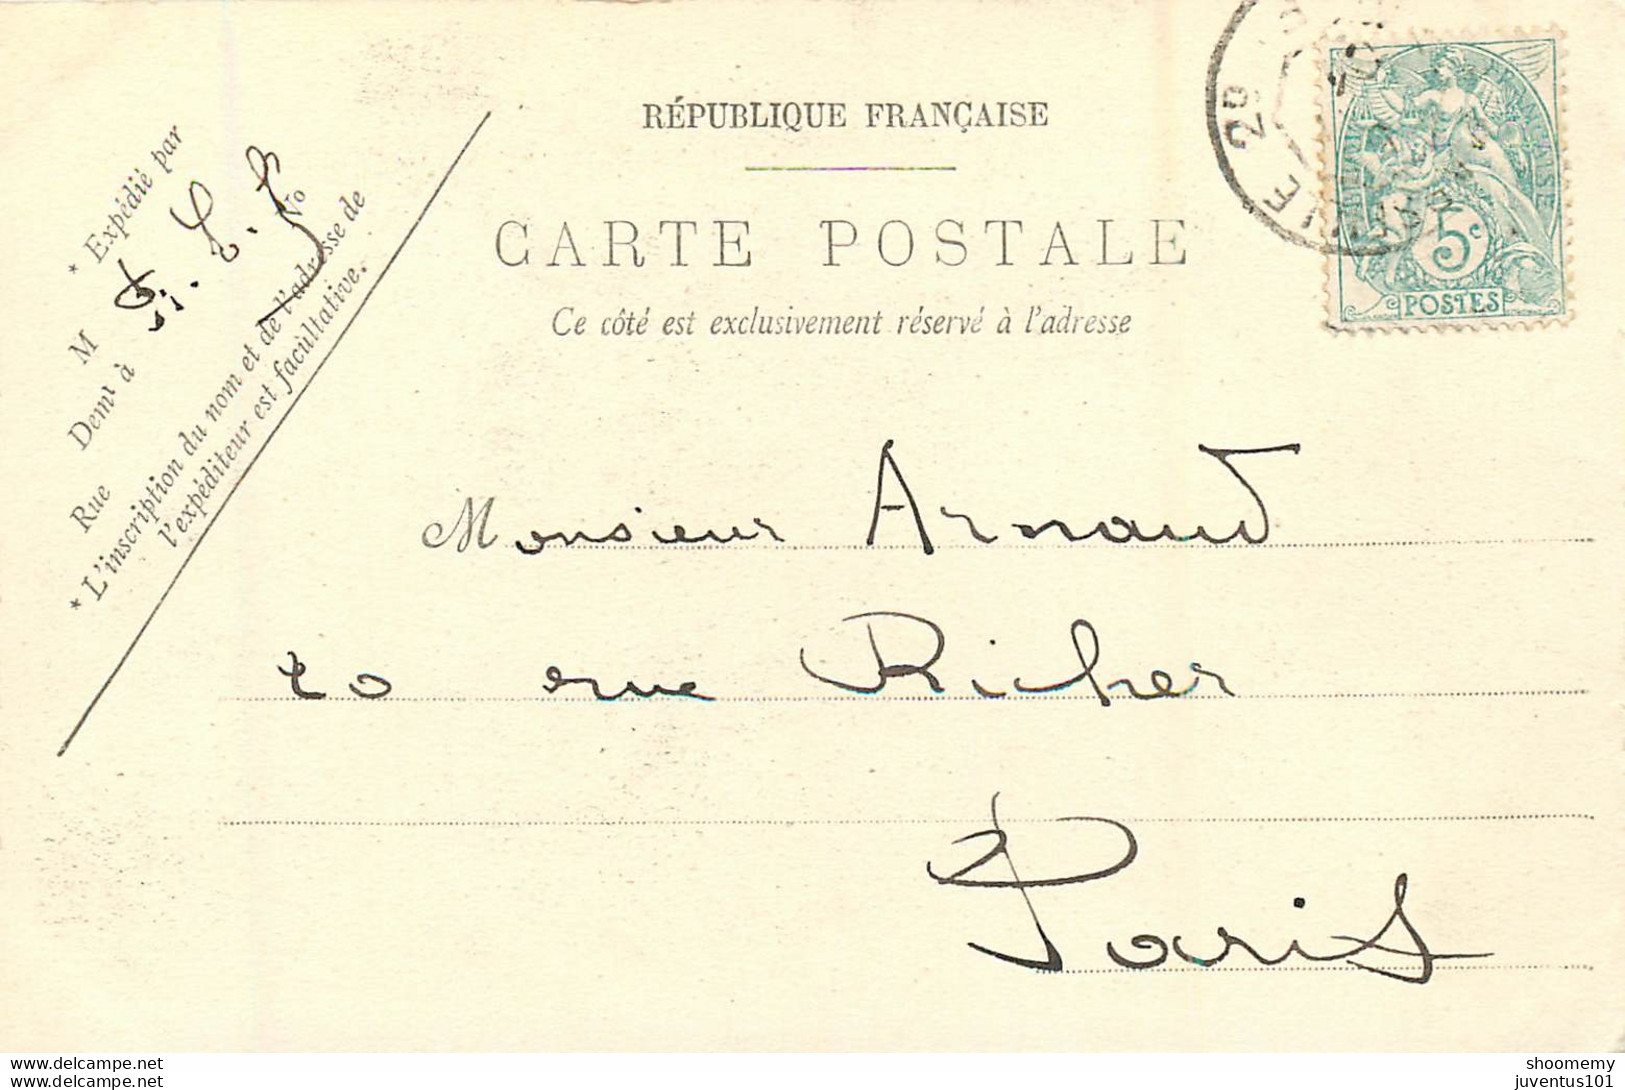 RÉPUBLIQUE FRANÇAISE
CARTE POSTALE
Ce côté est exclusivement réservé à l'adresse
* Expédié par
M
Demt à
Rue
No
* L'inscription du nom et de l'adresse de
l'expéditeur est facultative.
29
5c
POSTES
Monsieur Arnaud
20 rue Richer
Paris
www.delcampe.net
www.delcampe.net
shoomemy
juventus101